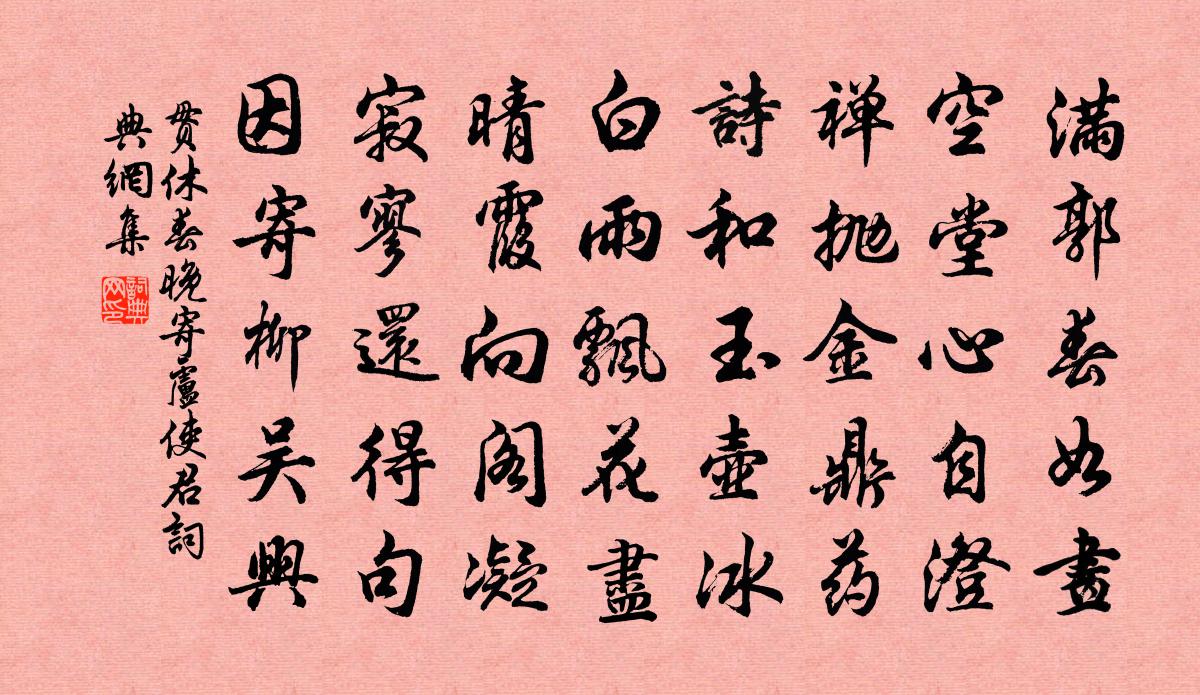 滿郭春如畫
空堂心自澄
禅抛金鼎药
詩和玉壺冰
白雨飄花盡
晴霞向阁凝
寂寥還得句
因寄柳吴興
贯休春晚寄盧使君詞
典網集
詞典网印